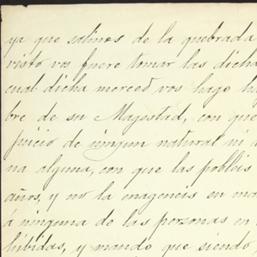 ya que salines de la quebrada
visto vos fuere tomar las dicha
cual dicha merced vos hago
bre de su Magestad, con que
juicio de ningun natural ni
na alguna, con que las poblás
años, y no la enageneis en
á ninguna de las personas en
hibidas, y mando que siendo